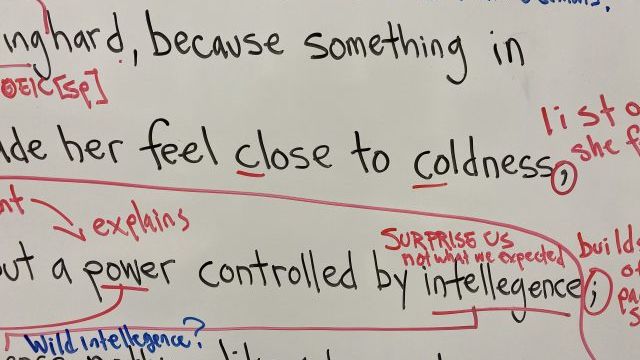 inghard, because something in
OEIC[sp]
list o
ade her feel close to coldness,
she f
explains
SURPRISE US
not what we expected
out a power controlled by intellegence;
builds
of
Wild intellegence?